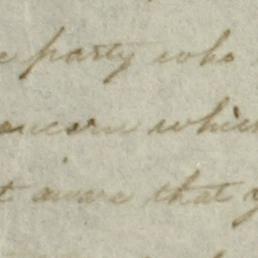 e party who
oncern which
t aware that y